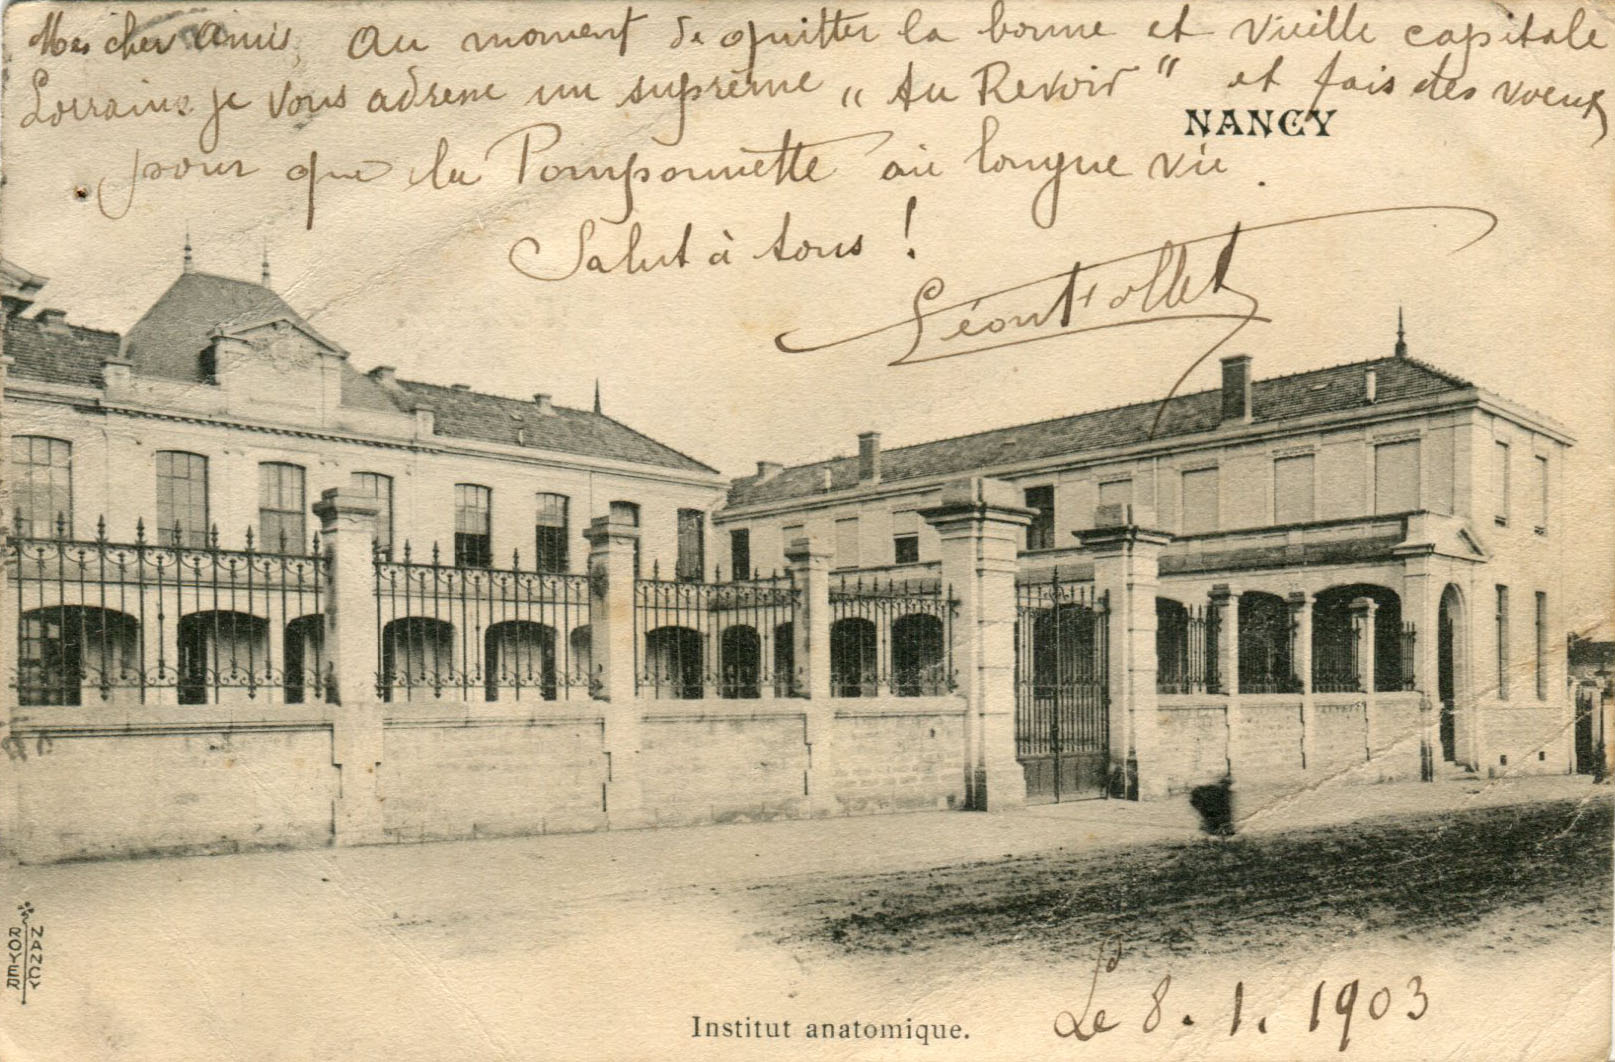 Mes cher Amis, Au moment de quitter la bonne et vieille capitale
Lorraine je vous adresse un suprême "Au Revoir" et fais des voeux
NANCY
pour que la Pomponnette ait longue vie.
Salut à tous !
Léon Follet
NANCY
ROYER
Institut anatomique.
Le 8. 1. 1903